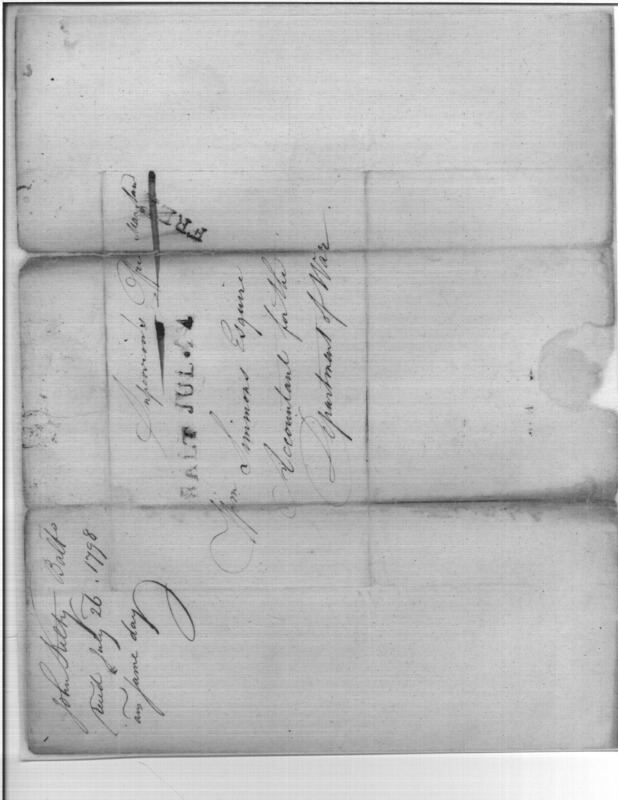 Supervisor's Office Maryland
FRE
BALT JUL 24
Wm Simmons Esquire
Accountant for the
Department of War
John Kilty Balto
Recd July 26. 1798
ans same day